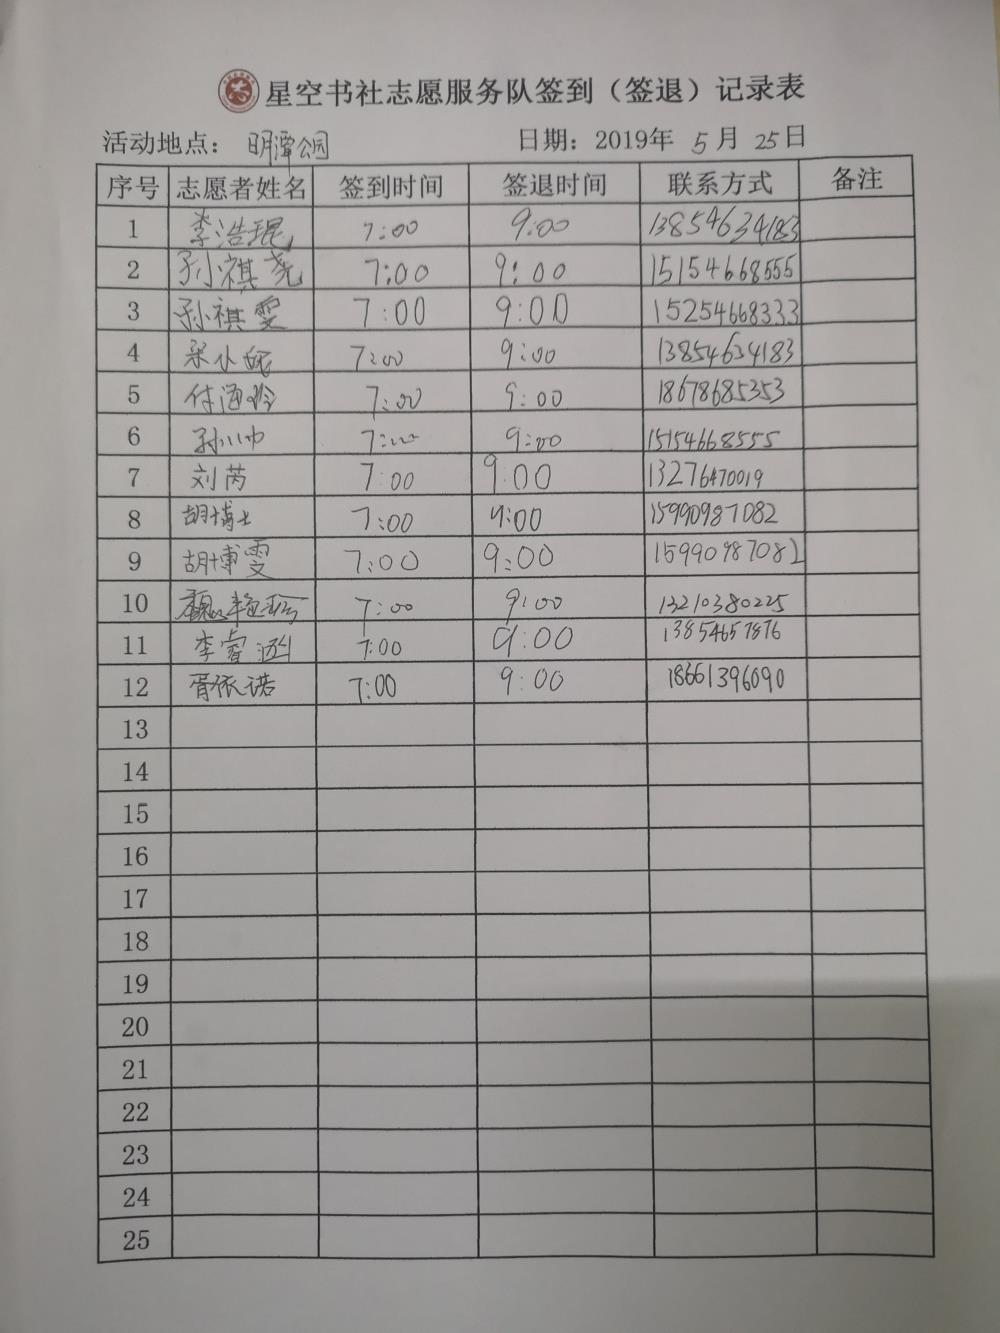 星空书社志愿服务队签到（签退）记录表
活动地点： 明潭公园 日期：2019年 5 月 25日
序号 志愿者姓名 签到时间 签退时间 联系方式 备注
1 李浩琨 7:00 9:00 13854634183
2 孙祺尧 7:00 9:00 15154668555
3 孙祺雯 7:00 9:00 15254668333
4 小妮 7:00 9:00 13854634183
5 付海玲 7:00 9:00 18678685353
6 孙小帅 7:00 9:00 15154668555
7 刘芮 7:00 9:00 13276470019
8 胡博士 7:00 9:00 15990987082
9 胡博雯 7:00 9:00 15990987082
10 7:00 9:00 13210380225
11 李睿涵 7:00 9:00 13854657876
12 胥依诺 7:00 9:00 18661396090
13
14
15
16
17
18
19
20
21
22
23
24
25